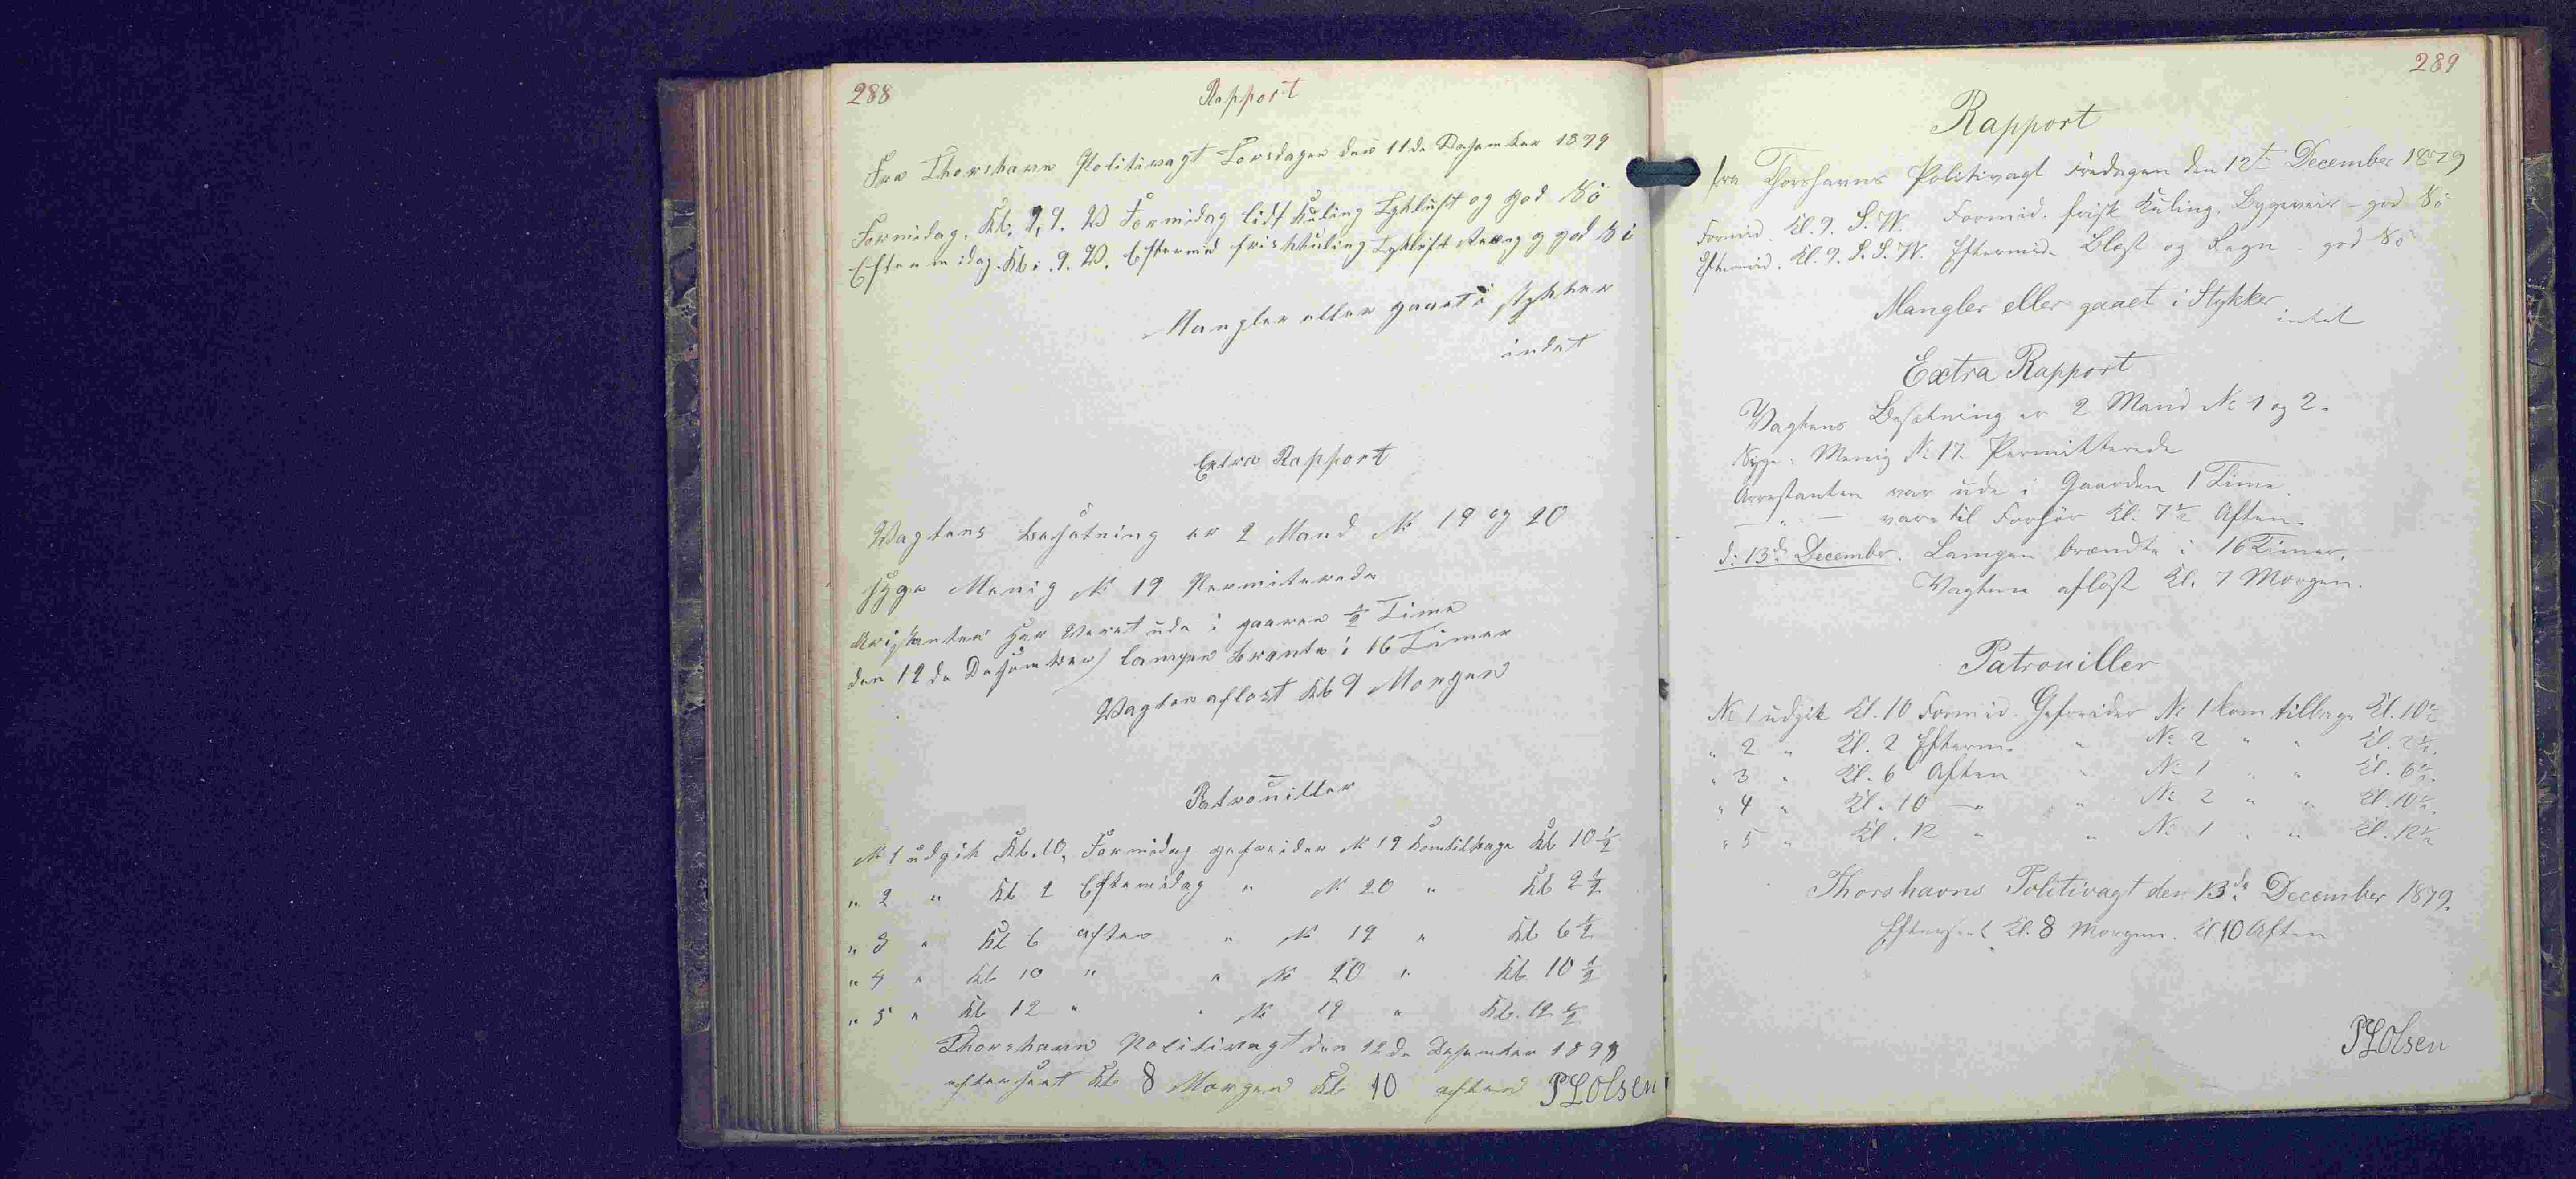 288
Rapport
Fra Thorshavn Politivagt Torsdagen den 11de Desember 1879
Formidag. Kl. 9. W Formidag lidt Kuling Tykluft og god Sö
Eftermidag. Kl: 9. W. Eftermid frisk Kuling Tykluft Reeng og god Sö
Mangler eller gaaet i stykker
indet
Extra Rapport
Wagtens besetning er 2 Mand No 19 og 20
syge Menig No 19 Permiterede
Aristanten har veret ude i gaaren ½ Time
den 12de Desember) lampen brante i 16 Timer
Wagten aflöst Kl 9 Morgen
Patrouiller
No 1 udgik Kl. 10, Formidag gefreider No 19 Komtilbage Kl 10 ½
" 2 " Kl 2 Eftermidag " No 20 " Kl 2 ½
" 3 " Kl 6 aften " No 19 " Kl 6 ½
" 4 " Kl 10 " " No 20 " Kl 10 ½
" 5 " Kl 12 " " No 19 " Kl. 12 ½
Thorshavn Politivagt den 12de Desember 1879
efterseet Kl 8 Morgen Kl 10 aften PLOlsen
289
Rapport
fra Thorshavns Politivagt Fredagen den 12te December 1879
Formid. Kl. 9. S.W. Formid. frisk Kuling, Bygeveir - god Sö
Eftermid. Kl. 9. S.S.W. Eftermid. Blæst og Regn - god Sö
Mangler eller gaaet i Stykker
intet
Extra Rapport
Vagtens Besætning er 2 Mand No 1 og 2.
Syge: Menig No 17 Permitterede
Arrestanten var ude i Gaarden 1 Time.
— " — var til Forhör Kl. 7½ Aften.
d: 13de Decembr. Lampen brændte i 16 Timer.
Vagten aflöst Kl. 7 Morgen.
Patrouiller
No 1 udgik Kl. 10 Formid. Gefreider No 1 kom tilbage Kl. 10½
" 2 " Kl. 2 Efterm. " No 2 " " Kl. 2½
" 3 " Kl. 6 Aften " No 1 " " Kl. 6½
" 4 " Kl. 10 — " " No 2 " " Kl. 10½
" 5 " Kl. 12 " " No 1 " " Kl. 12½
Thorshavns Politivagt den 13de December 1879.
Efterseet Kl. 8 Morgen. Kl. 10 Aften
PLOlsen